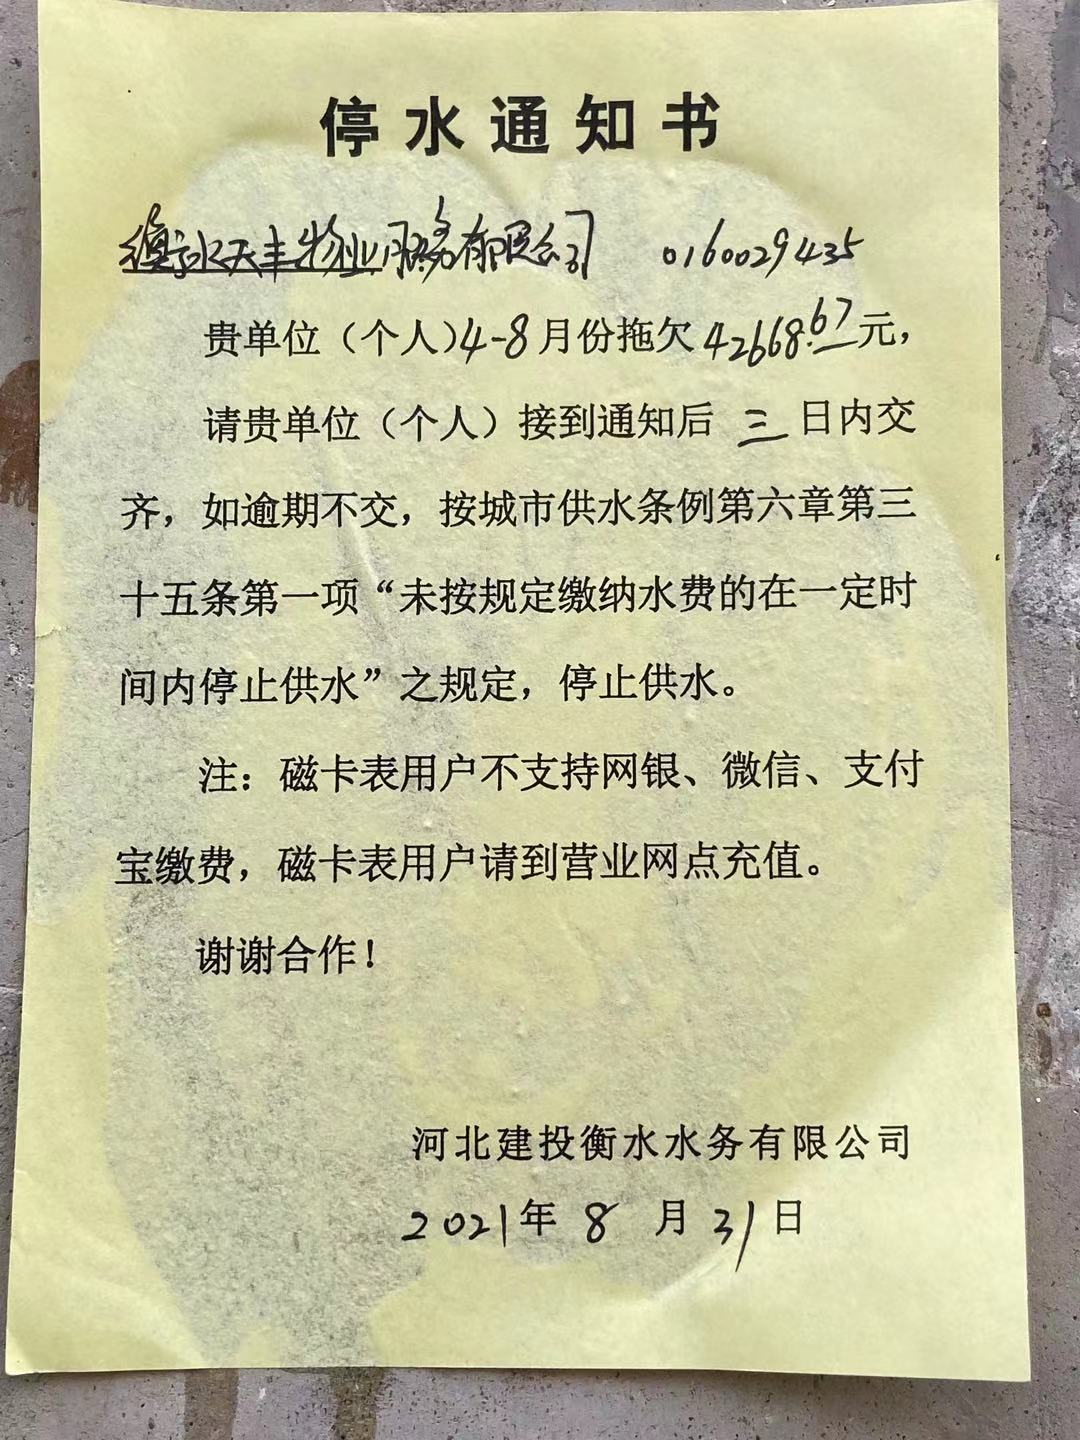 停水通知书
衡水天丰物业服务有限公司 0160029435
贵单位（个人)4-8月份拖欠42668.67元，
请贵单位（个人）接到通知后三日内交
齐，如逾期不交，按城市供水条例第六章第三
十五条第一项“未按规定缴纳水费的在一定时
间内停止供水”之规定，停止供水。
注：磁卡表用户不支持网银、微信、支付
宝缴费，磁卡表用户请到营业网点充值。
谢谢合作！
河北建投衡水水务有限公司
2021年8月31日